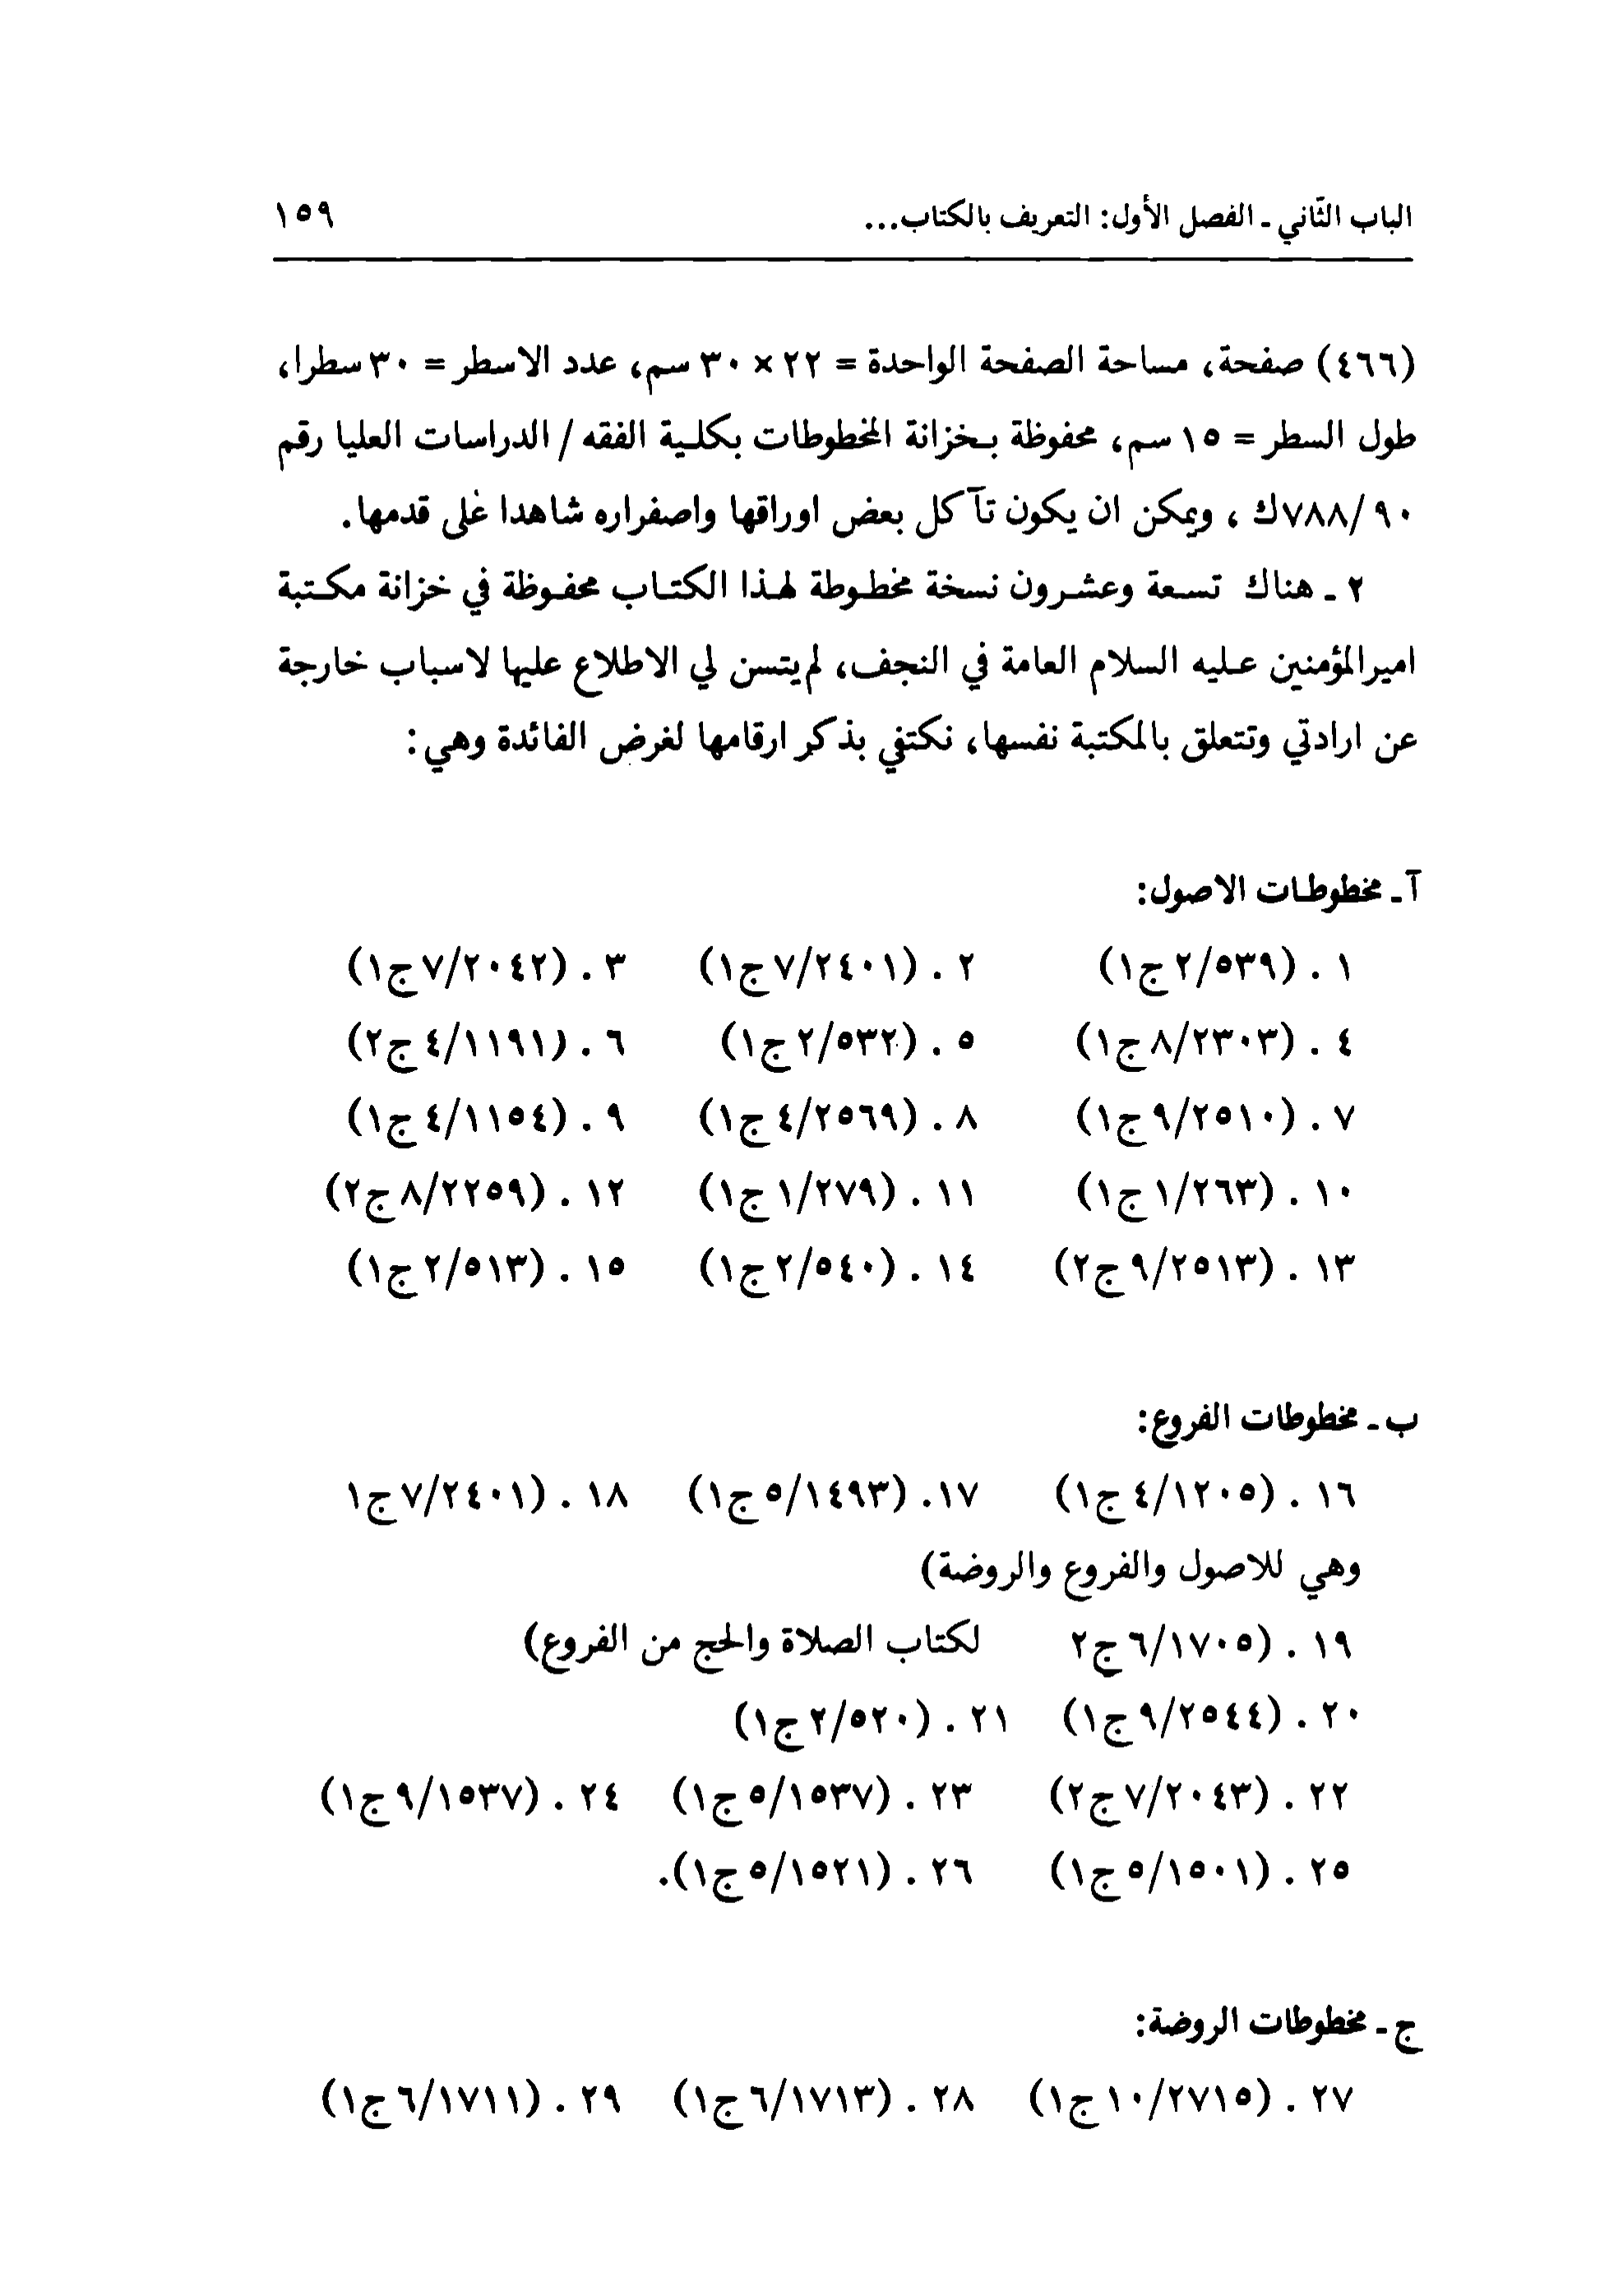 الباب الثّاني ـ الفصل الأول: التعريف بالكتاب... ١٥٩
(٤٦٦) صفحة، مساحة الصفحة الواحدة = ٢٢ × ٣٠ سم، عدد الاسطر = ٣٠ سطرا،
طول السطر = ١٥ سم، محفوظة بخزانة المخطوطات بكلية الفقه / الدراسات العليا رقم
٧٨٨/٩٠ك ، ويمكن ان يكون تآكل بعض اوراقها واصفراره شاهدا على قدمها.
٢ ـ هناك تسعة وعشرون نسخة مخطوطة لهذا الكتاب محفوظة في خزانة مكتبة
اميرالمؤمنين عليه السلام العامة في النجف، لم يتسن لي الاطلاع عليها لاسباب خارجة
عن ارادتي وتتعلق بالمكتبة نفسها، نكتفي بذكر ارقامها لغرض الفائدة وهي:
آ ـ مخطوطات الاصول:
١ . (٢/٥٣٩ج١) ٢ . (٧/٢٤٠١ج١) ٣ . (٧/٢٠٤٢ج١)
٤ . (٨/٢٣٠٣ج١) ٥ . (٢/٥٣٢ج١) ٦ . (٤/١١٩١ج٢)
٧ . (٩/٢٥١٠ج١) ٨ . (٤/٢٥٦٩ج١) ٩ . (٤/١١٥٤ج١)
١٠ . (١/٢٦٣ج١) ١١ . (١/٢٧٩ج١) ١٢ . (٨/٢٢٥٩ج٢)
١٣ . (٩/٢٥١٣ج٢) ١٤ . (٢/٥٤٠ج١) ١٥ . (٢/٥١٣ج١)
ب ـ مخطوطات الفروع:
١٦ . (٤/١٢٠٥ج١) ١٧. (٥/١٤٩٣ج١) ١٨ . (٧/٢٤٠١ج١
وهي للاصول والفروع والروضة)
١٩ . (٦/١٧٠٥ج٢ لكتاب الصلاة والحج من الفروع)
٢٠ . (٩/٢٥٤٤ج١) ٢١ . (٢/٥٢٠ج١)
٢٢ . (٧/٢٠٤٣ج٢) ٢٣ . (٥/١٥٣٧ج١) ٢٤ . (٩/١٥٣٧ج١)
٢٥ . (٥/١٥٠١ج١) ٢٦ . (٥/١٥٢١ج١).
ج ـ مخطوطات الروضة:
٢٧ . (١٠/٢٧١٥ج١) ٢٨ . (٦/١٧١٣ج١) ٢٩ . (٦/١٧١١ج١)